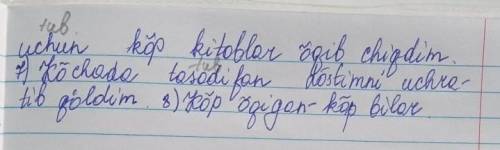 tub.
uchun kŏp kitoblar ŏqib chiqdim.
7) Kŏchada tasodifan dŏstimni uchra-
tib qŏldim. 8) Kŏp ŏqigan-kŏp bilar.